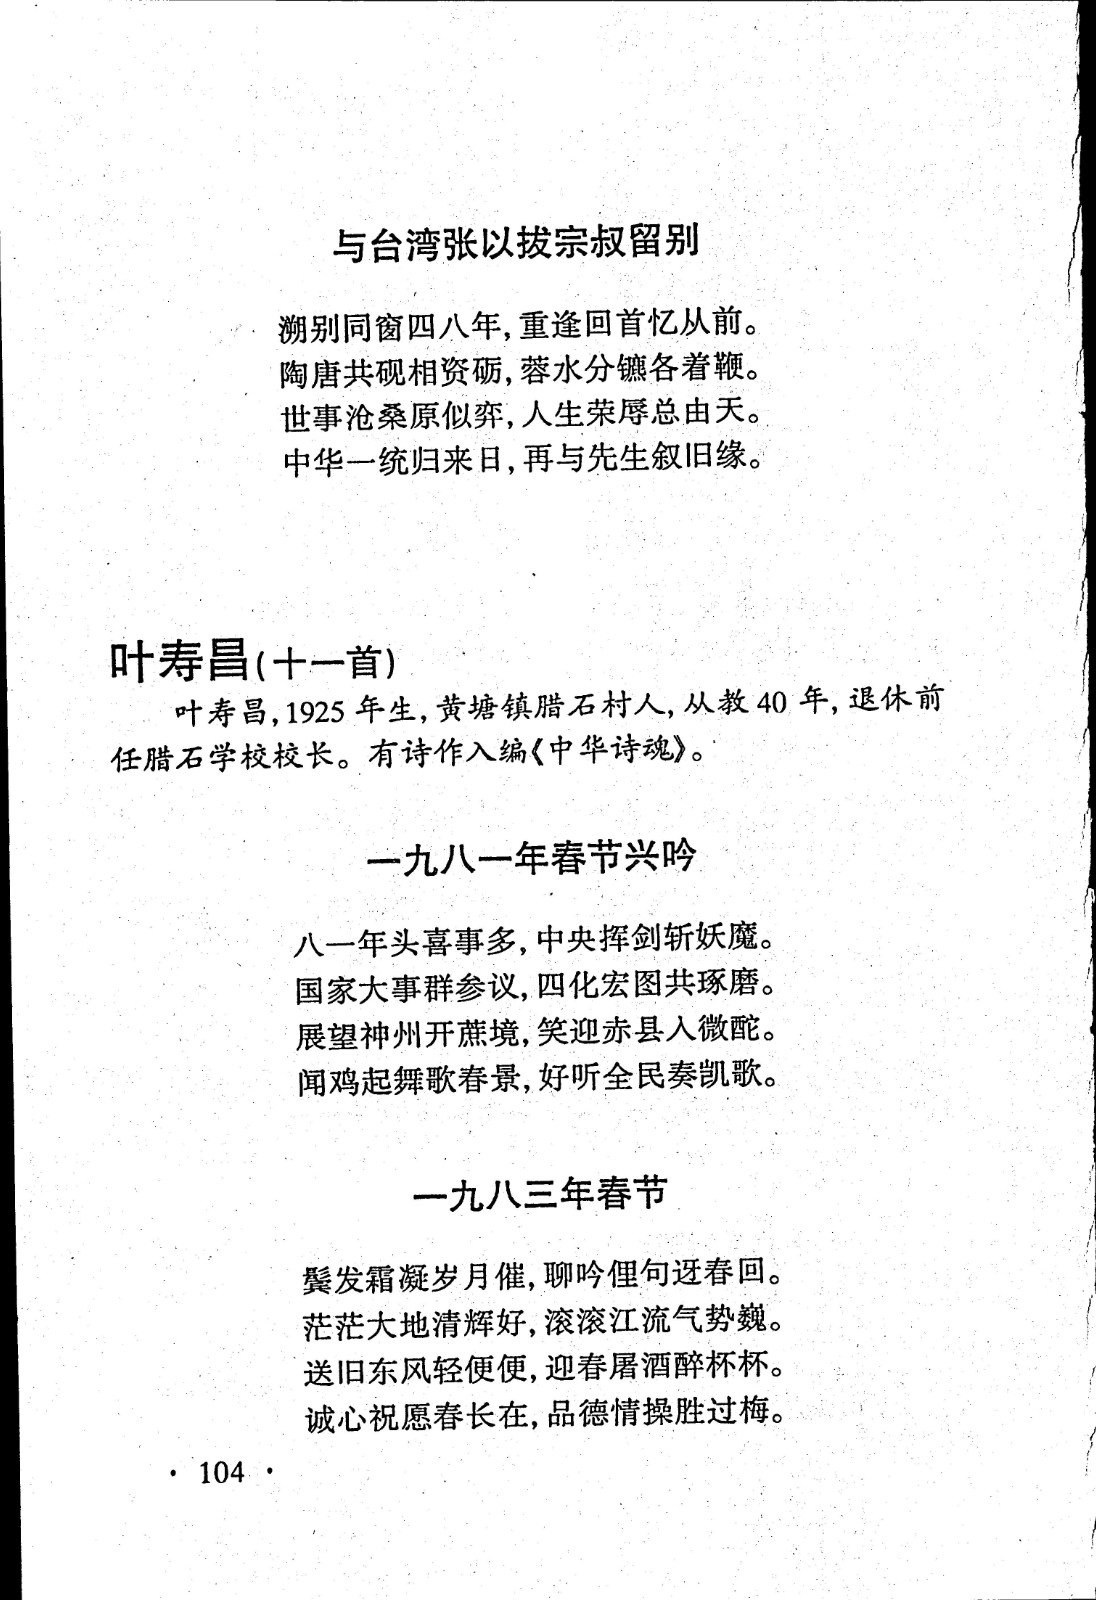 与台湾张以拔宗叔留别
溯别同窗四八年,重逢回首忆从前。
陶唐共砚相资砺,蓉水分镳各着鞭。
世事沧桑原似弈,人生荣辱总由天。
中华一统归来日,再与先生叙旧缘。
叶寿昌(十一首)
叶寿昌,1925年生,黄塘镇腊石村人,从教40年,退休前
任腊石学校校长。有诗作入编《中华诗魂》。
一九八一年春节兴吟
八一年头喜事多,中央挥剑斩妖魔。
国家大事群参议,四化宏图共琢磨。
展望神州开蔗境,笑迎赤县入微酡。
闻鸡起舞歌春景,好听全民奏凯歌。
一九八三年春节
鬓发霜凝岁月催,聊吟俚句迓春回。
茫茫大地清辉好,滚滚江流气势巍。
送旧东风轻便便,迎春屠酒醉杯杯。
诚心祝愿春长在,品德情操胜过梅。
· 104 ·